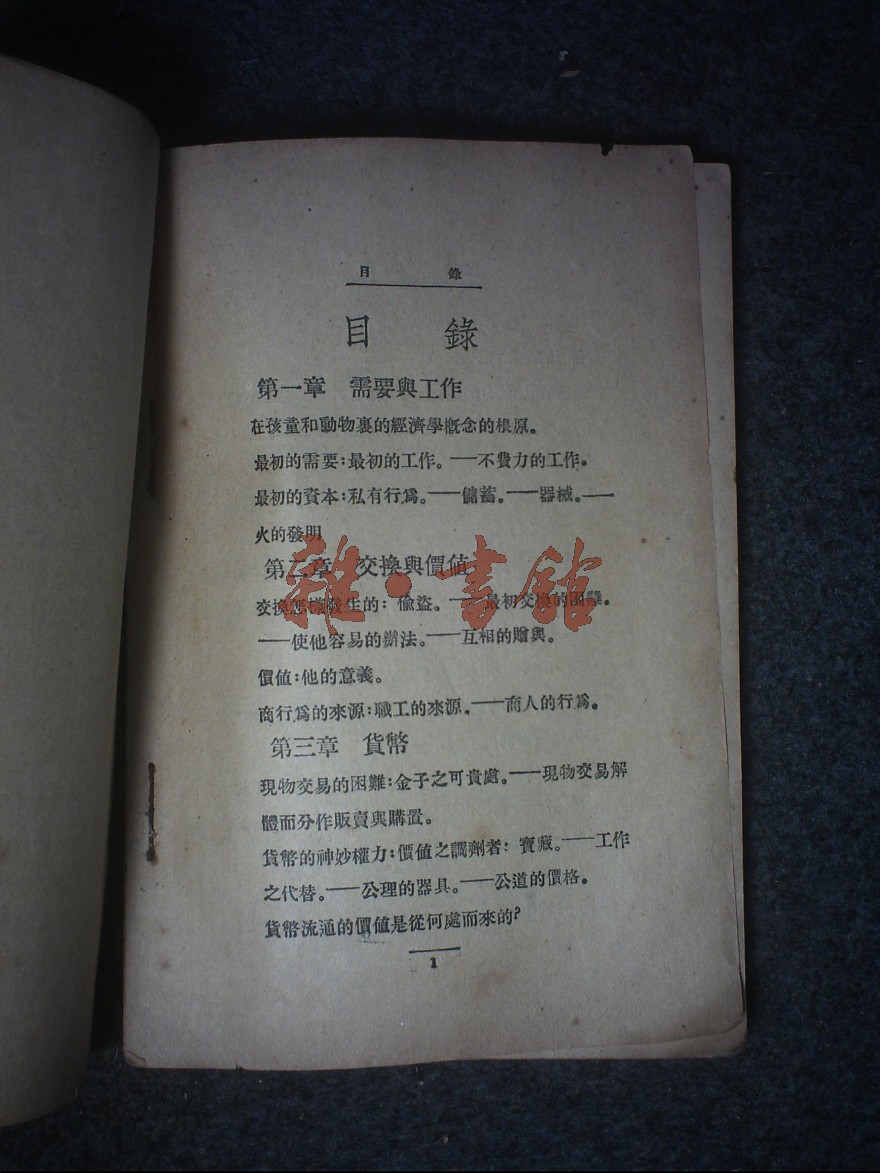 目 錄
目 錄
第一章 需要與工作
在孩童和動物裏的經濟學概念的根原。
最初的需要:最初的工作。——不費力的工作。
最初的資本:私有行爲。——儲蓄。——器械。——
火的發明
第二章 交換與價值
交換怎樣發生的:偸盜。——最初交換的困難。
——使他容易的辦法。——互相的贈與。
價值:他的意義。
商行爲的來源:職工的來源。——商人的行爲。
第三章 貨幣
現物交易的困難:金子之可貴處。——現物交易解
體而分作販賣與購置。
貨幣的神妙權力:價值之調劑者:寶藏。——工作
之代替。——公理的器具。——公道的價格。
貨幣流通的價值是從何處而來的?
1
雜·書館